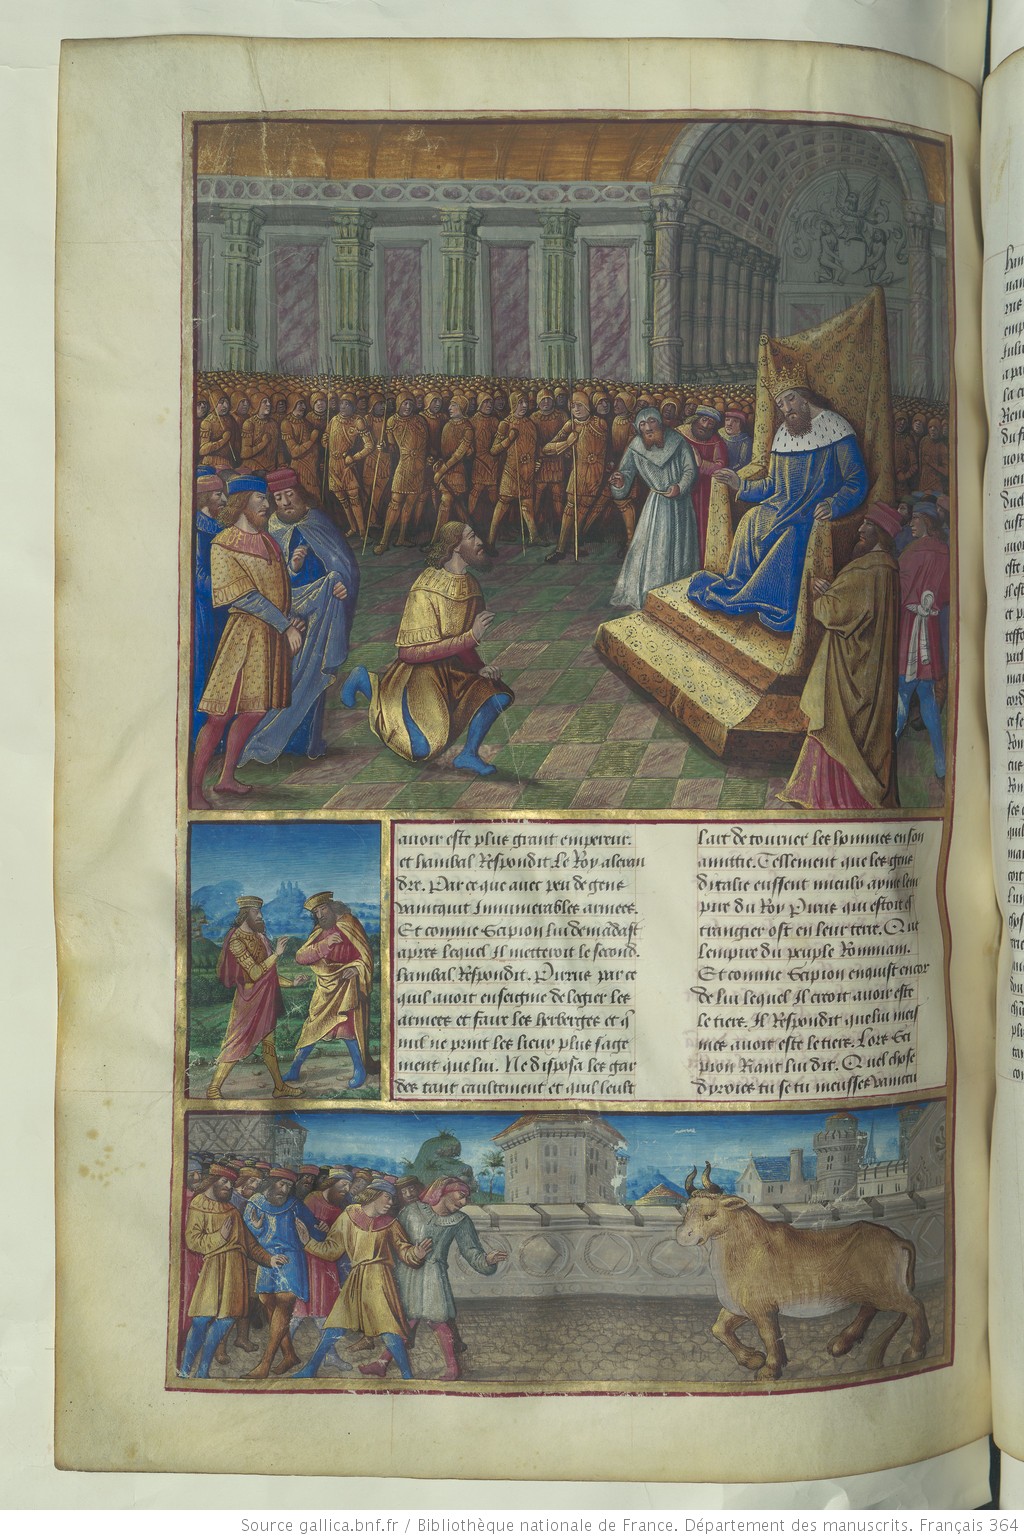 avoir este plus grant empereur.
et hanibal Respondit. Le Roy alexan
dre. Par ce que avec peu de gens
vainquit Innumerables armees.
Et comme Scipion lui demādast
apres lequel Il mettroit le second.
hanibal Respondit. Pirrus par ce
quil avoit enseigne de logier les
armees et faire les herberges et q̄
nul ne print les lieux plus sage
ment que lui. Ne disposa les gar
des tant caultement et quil seult
lart de tourner les hommes en son
amitie. Tellement que les gens
ditalie eussent mieulx ayme lem
pire du Roy Pirrus qui estoit es
trangier ost en leur terre. Que
lempire du peuple Rommain.
Et comme Scipion enquist encor
de lui lequel Il creoit avoir este
le tiers. Il Respondit que lui mes
mes avoit este le tiers. Lors Sci
pion Riant lui dit. Quel chose
dyroies tu se tu meusses vaincu
Source gallica.bnf.fr / Bibliothèque nationale de France. Département des manuscrits. Français 364